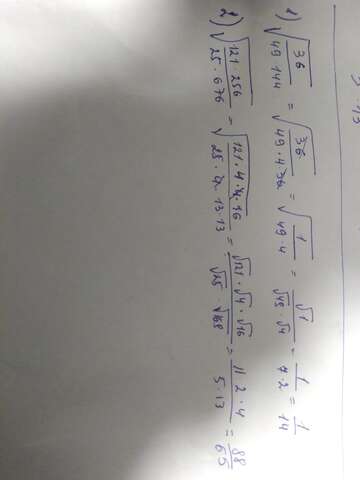 1) √(36/(49·144)) = √(36/(49·4·36)) = √(1/(49·4)) = √1/(√49·√4) = 1/(7·2) = 1/14
2) √((121·256)/(25·676)) = √((121·4·4·16)/(25·4·13·13)) = (√121·√4·√16)/(√25·√169) = (11·2·4)/(5·13) = 88/65